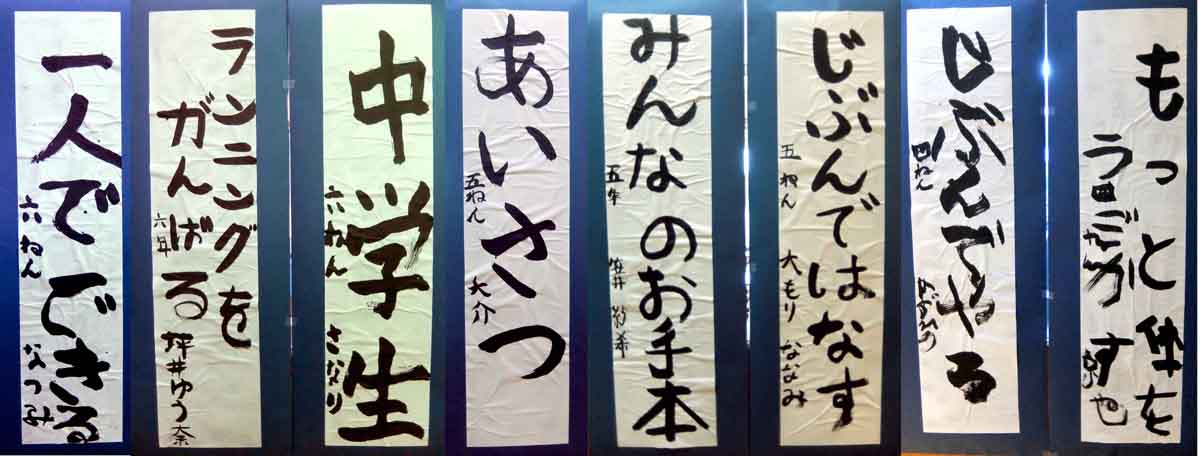 もっと体を
うごかす
じぶんでやる
四ねん
じぶんではなす
五ねん 大もり ななみ
みんなのお手本
五年 笠井
あいさつ
五ねん 大介
中学生
六ねん さなり
ランニングを
がんばる
六年 坪井ゆう奈
一人でできる
六ねん なつみ